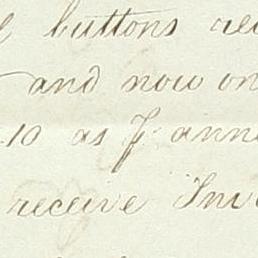 buttons rec
and now on
10 as P anne
receive Inv